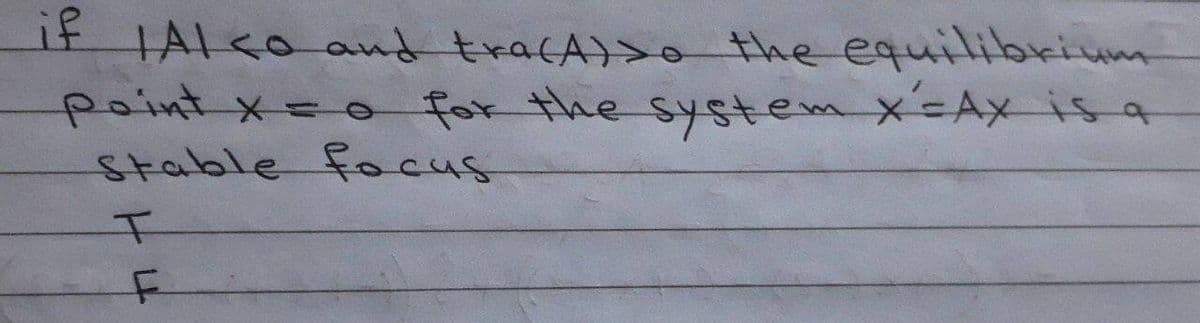 if |A|<0 and tra(A)>0 the equilibrium
point x=0 for the system x'=Ax is a
stable focus
T
F